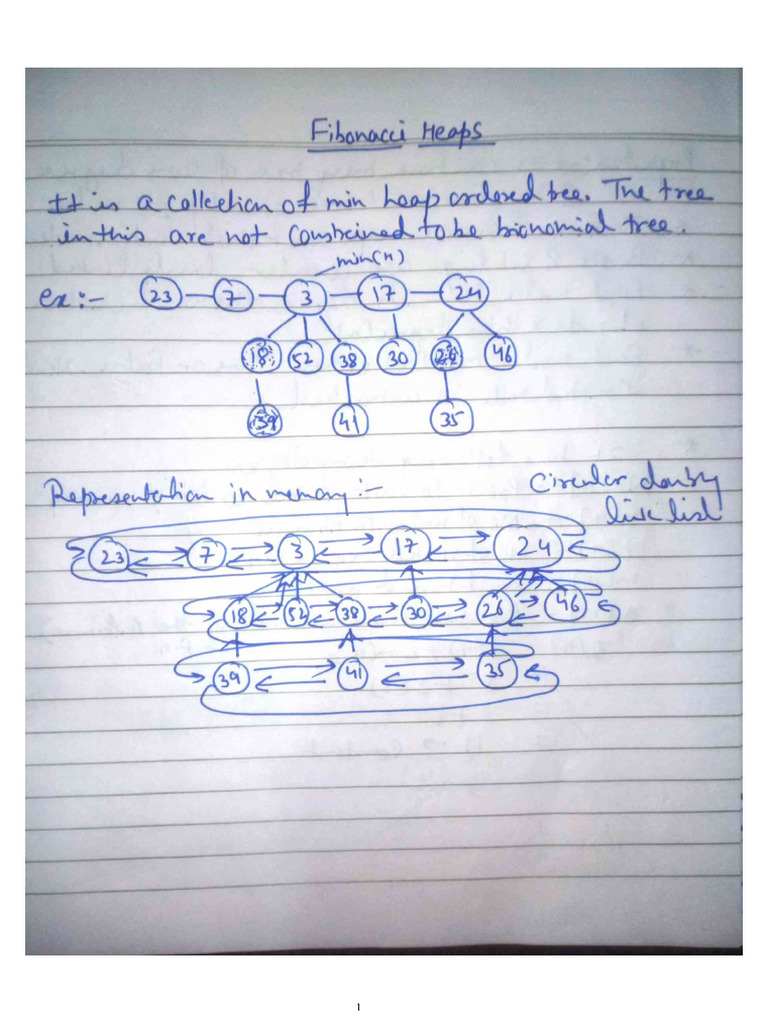 Fibonacci Heaps
It is a collection of min heap ordered tree. The tree
in this are not constrained to be bionomial tree.
min(H)
ex:- 23 7 3 17 24
18 52 38 30 26 46
39 41 35
Representation in memory:- Circular doubly
link list
23 7 3 17 24
18 52 38 30 26 46
39 41 35
1